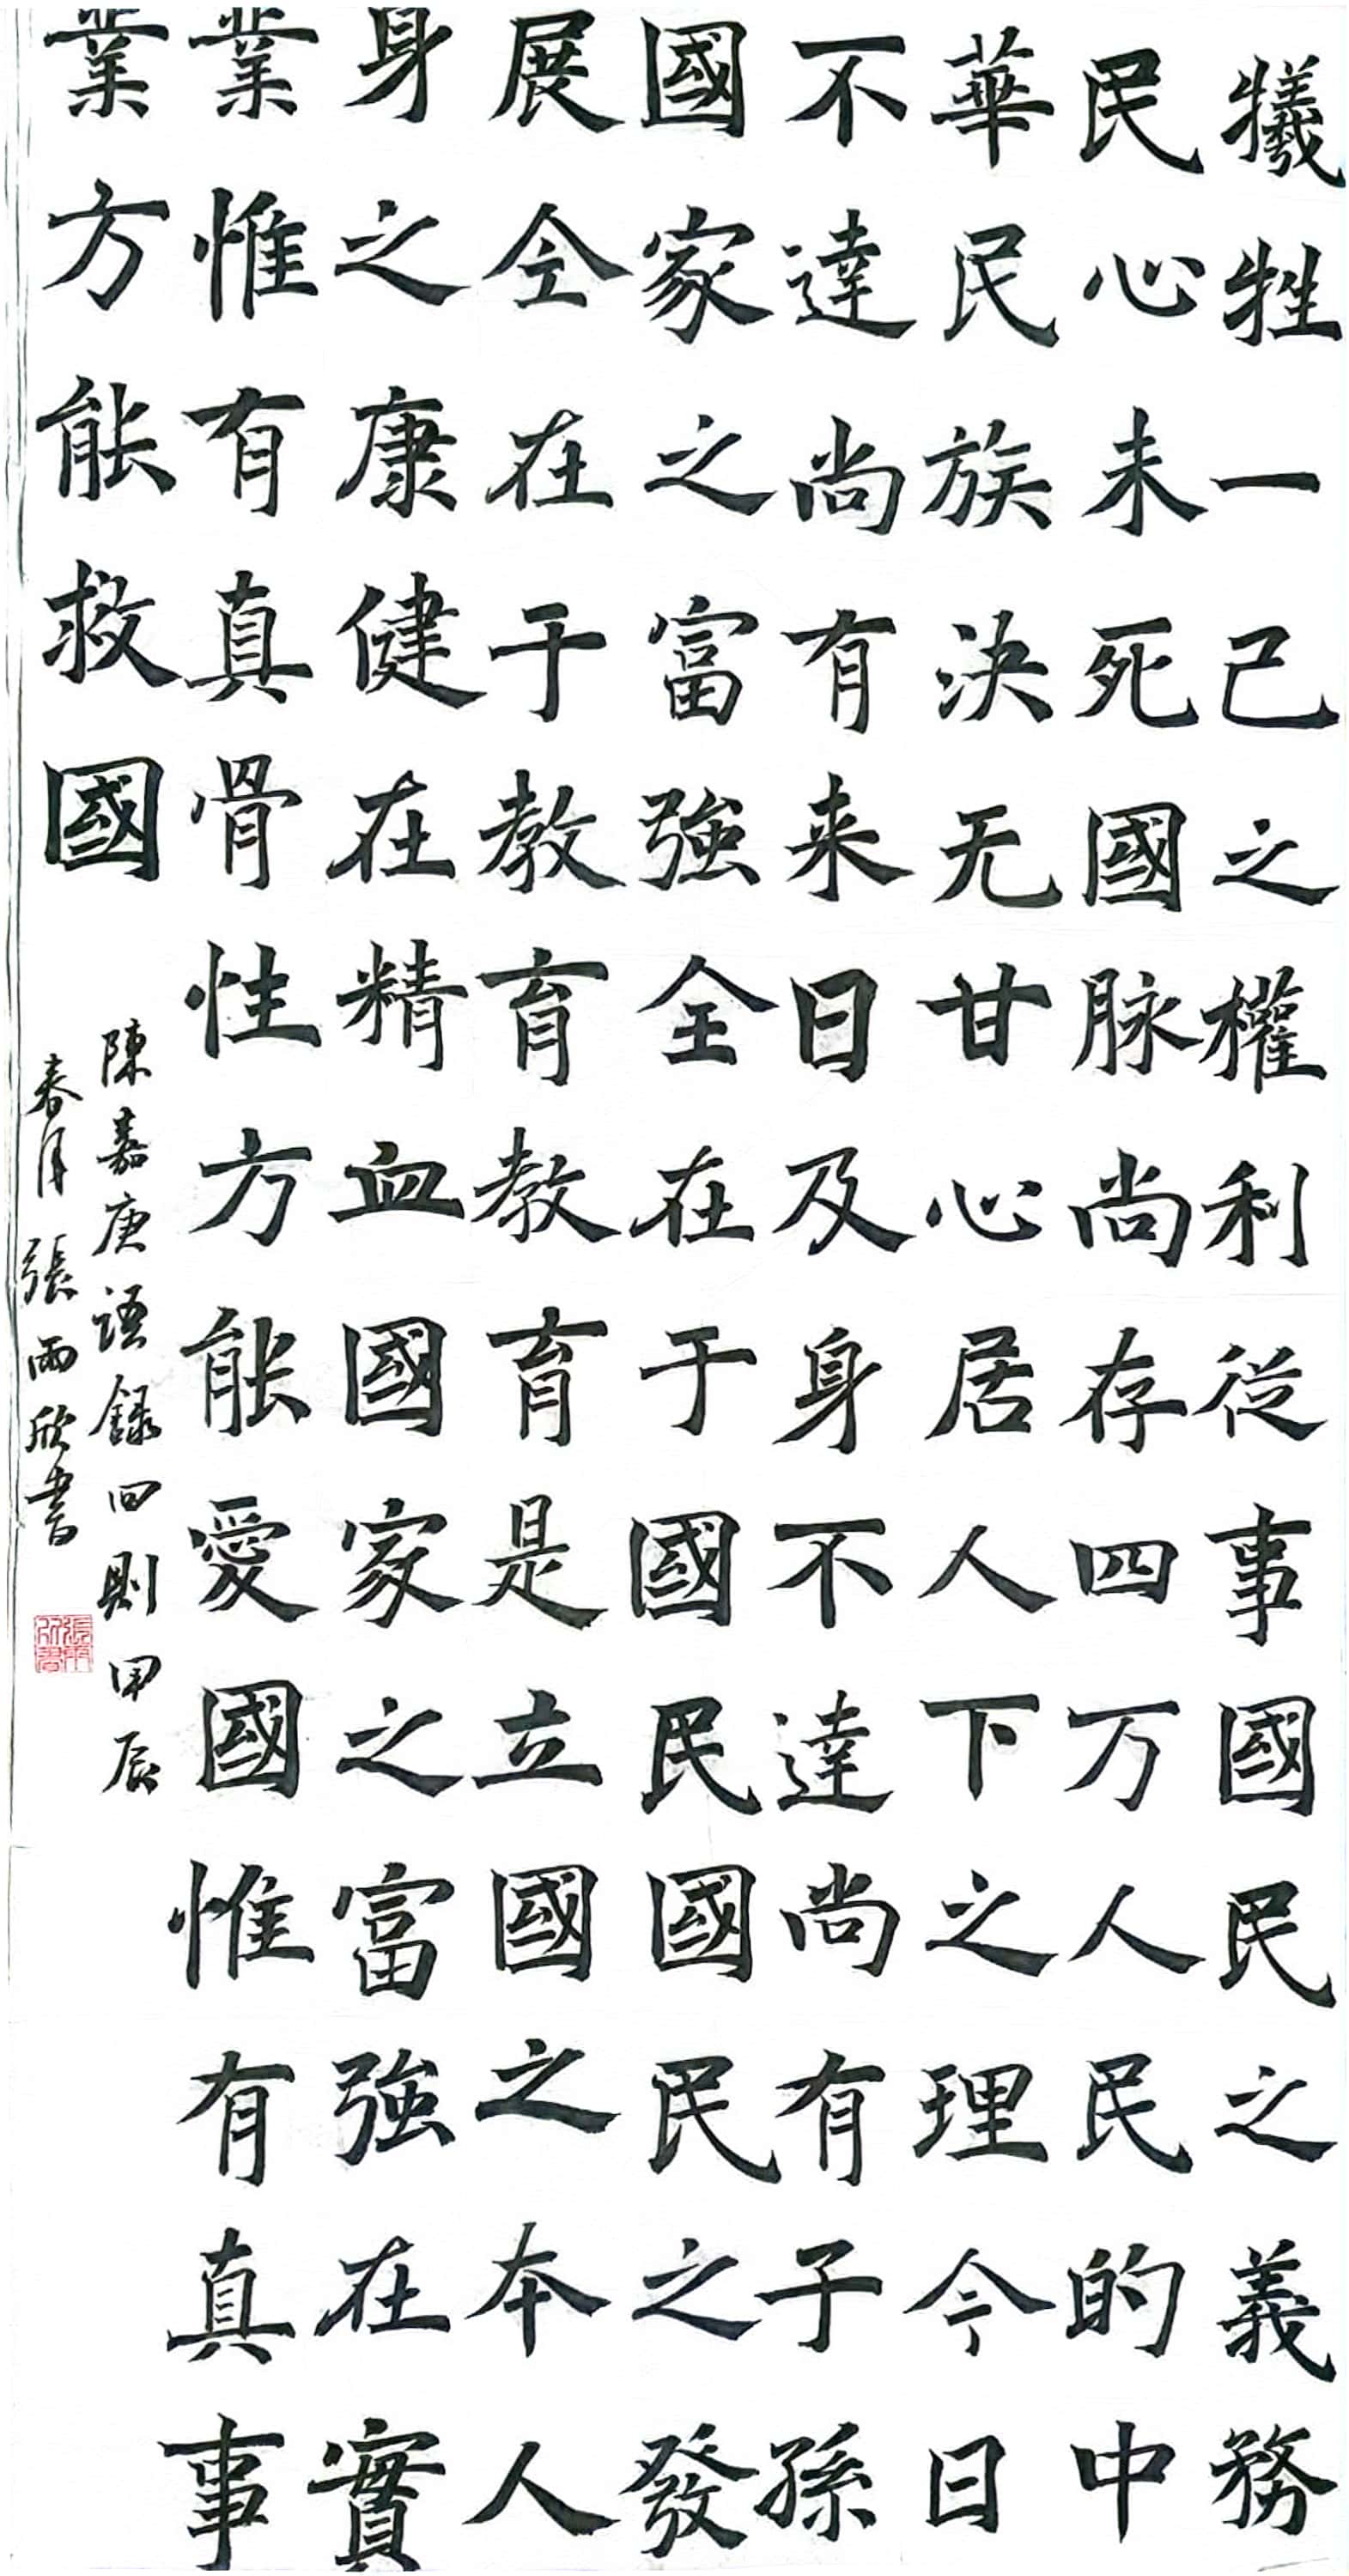 犧牲一己之權利従事國民之義務
民心未死國脉尚存四万人民的中
華民族決无甘心居人下之理今日
不達尚有来日及身不達尚有子孫
國家之富強全在于國民國民之發
展全在于教育教育是立國之本人
身之康健在精血國家之富強在實
業惟有真骨性方能愛國惟有真事
業方能救國
陳嘉庚語録四則甲辰
春月張雨欣書